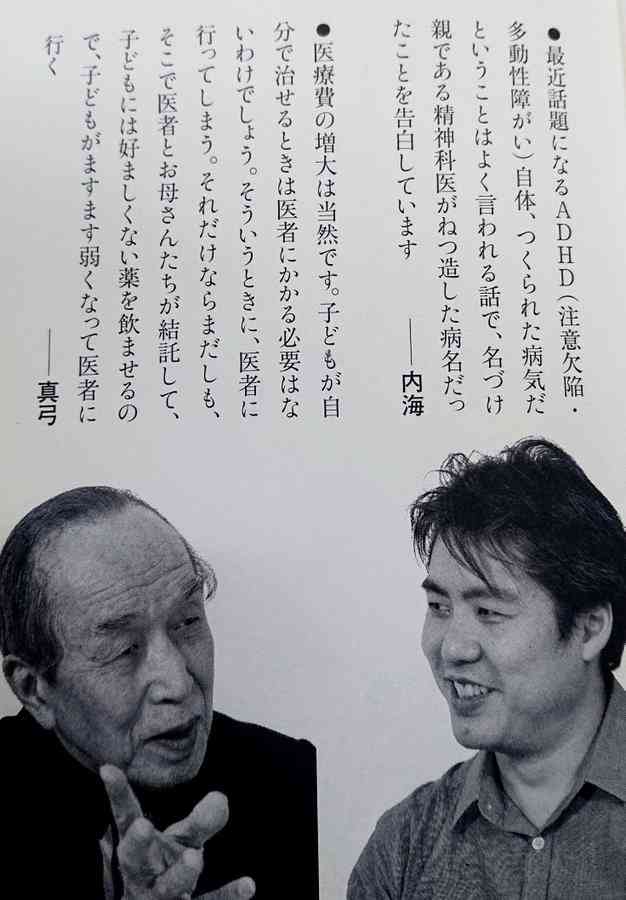 ●最近話題になるＡＤＨＤ（注意欠陥・
多動性障がい）自体、つくられた病気だ
ということはよく言われる話で、名づけ
親である精神科医がねつ造した病名だっ
たことを告白しています
――内海
●医療費の増大は当然です。子どもが自
分で治せるときは医者にかかる必要はな
いわけでしょう。そういうときに、医者に
行ってしまう。それだけならまだしも、
そこで医者とお母さんたちが結託して、
子どもには好ましくない薬を飲ませるの
で、子どもがますます弱くなって医者に
行く
――真弓